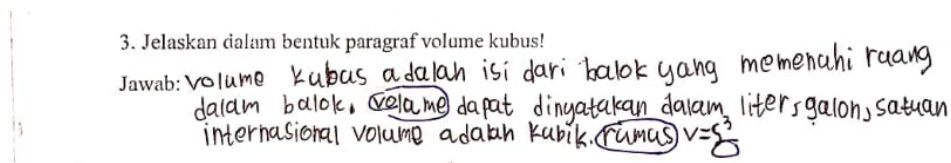 3. Jelaskan dalam bentuk paragraf volume kubus!
Jawab: Volume kubus adalah isi dari balok yang memenuhi ruang
dalam balok. volume dapat dinyatakan dalam liter, galon, satuan
internasional volume adalah kubik. rumus v=s³